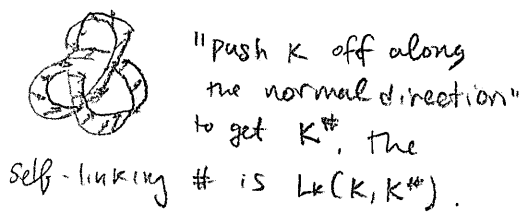 "push K off along
the normal direction"
to get K#. The
self-linking # is Lk(K, K#).